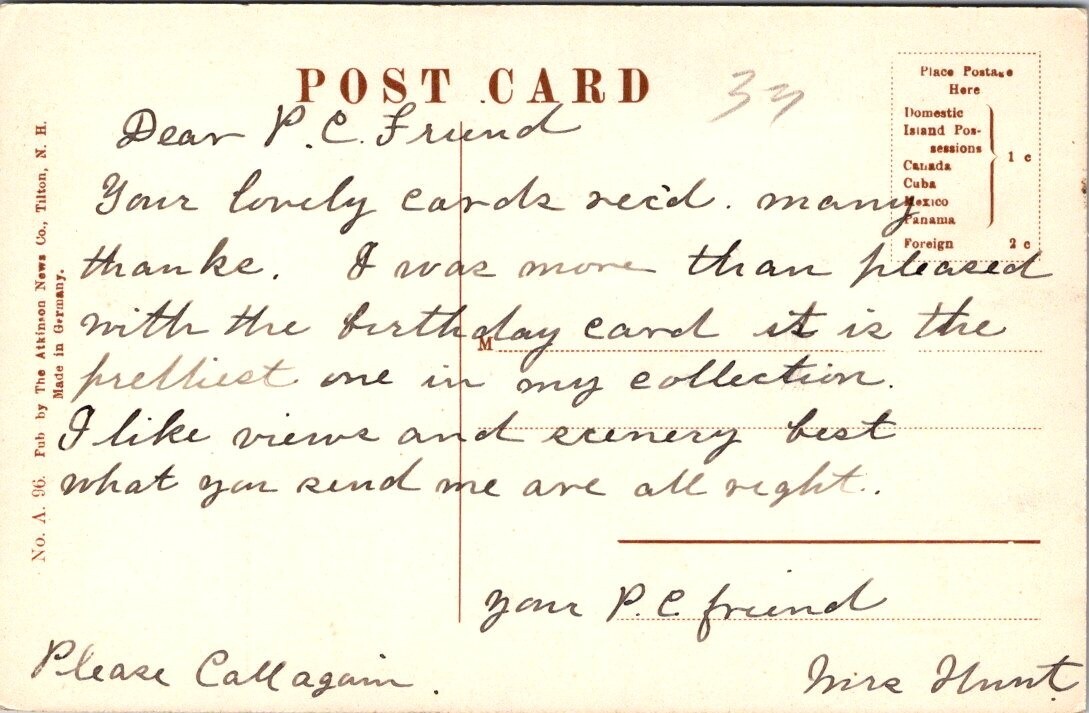 POST CARD
37
Place Postage
Here
Domestic
Island Pos-
sessions
Canada
Cuba
Mexico
Panama
1 c
Foreign 2 c
No. A. 96. Pub by The Atkinson News Co., Tilton, N. H.
Made in Germany.
Dear P.C. Friend
Your lovely cards rec'd. many
thanks. I was more than pleased
with the birthday card it is the
prettiest one in my collection.
I like views and scenery best
what you send me are all right.
M
your P.C. friend
Please Call again.
Mrs Hunt